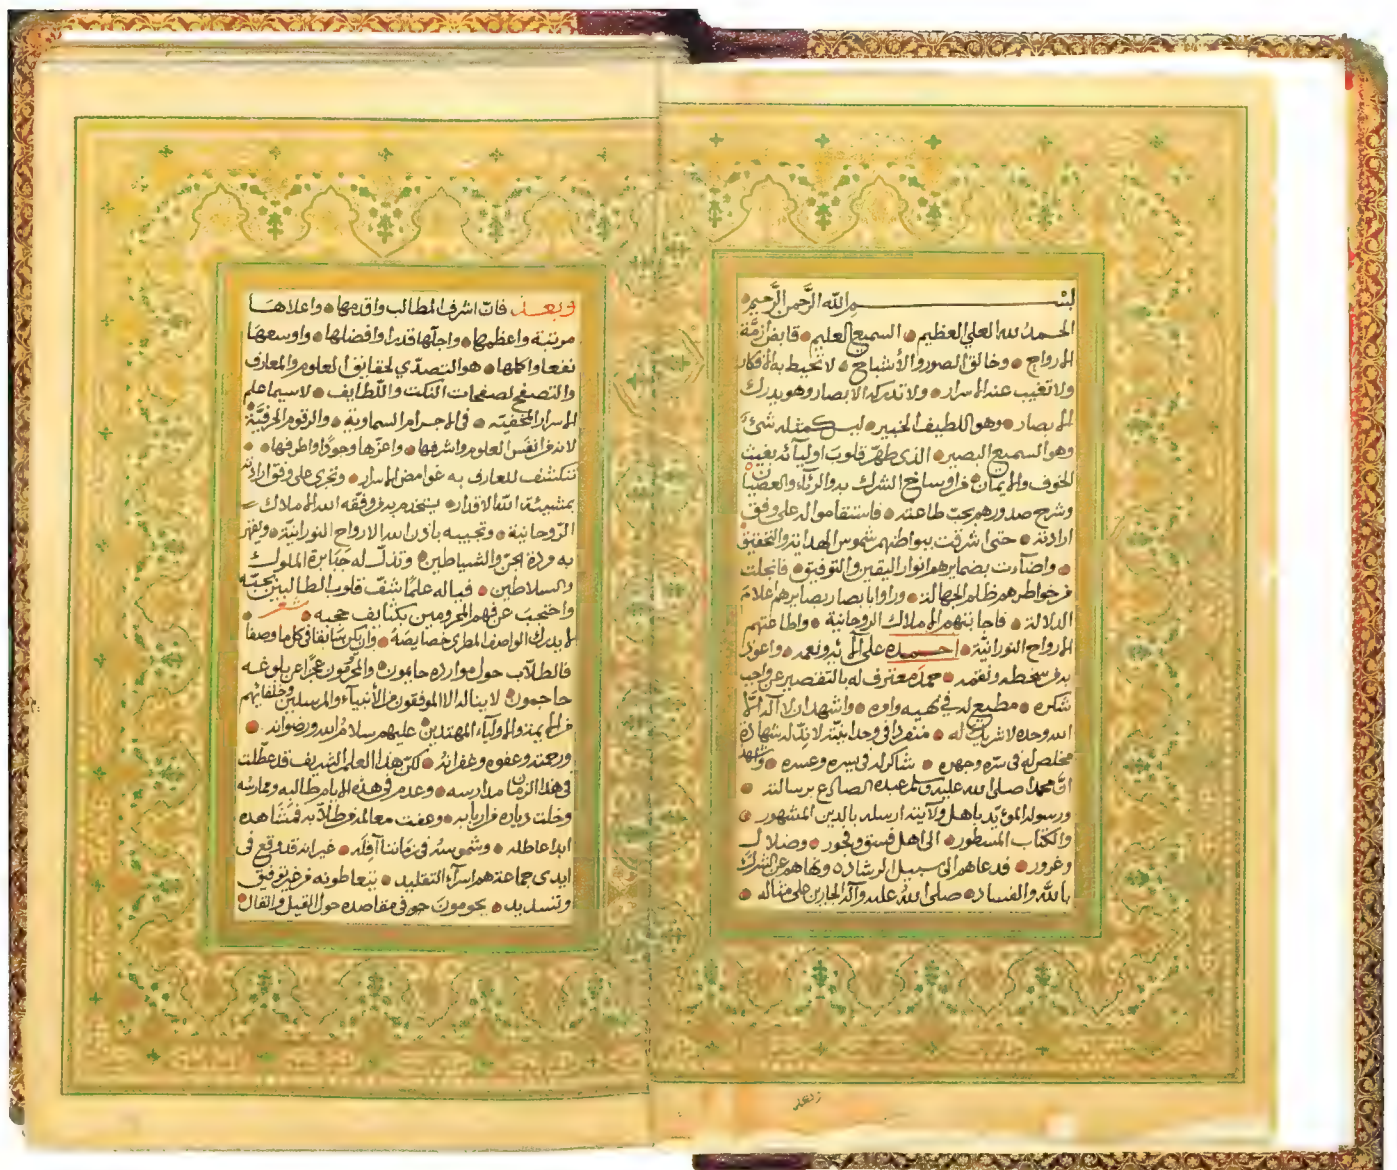 بسم الله الرحمن الرحيم
الحمد لله العلي العظيم السميع العليم قابض ازمة
الارواح وخالق الصور والأشباح لا تحيط به الافكار
ولا تغيب عنه الاسرار ولا تدركه الابصار وهو يدرك
الابصار وهو اللطيف الخبير ليس كمثله شئ
وهو السميع البصير الذي طهر قلوب اوليائه بغيث
الخوف والايمان من اوساخ الشرك بدو الرئاء والعصيان
وشرح صدورهم بحب طاعته فاستقاموا له على وفق
ارادته حتى اشرقت ببواطنهم شموس الهداية والتحقيق
واضاءت بضمايرهم انوار اليقين والتوفيق فانجلت
عن خواطرهم ظلم الجهالة وراوا بابصار بصايرهم علامة
الدلالة فاجابتهم الاملاك الروحانية واطاعتهم
الارواح النورانية احمده على آلائه ونعمه واعوذ
به من سخطه ونقمه حمد معترف له بالتقصير عن واجب
شكره مطيع له في نهيه وامره واشهد ان لا اله الا
الله وحده لا شريك له منفردا في وحدانيته لا ند له شهادة
مخلص له في سره وجهره شاكر له في يسره وعسره واشهد
ان محمدا صلى الله عليه وسلم عبده الصادع برسالته
ورسوله المؤيد باهل ولايته ارسله بالدين المشهور
والكتاب المسطور الى اهل فسق وفجور وضلال
وغرور فدعاهم الى سبيل الرشاد ونهاهم عن الشرك
بالله والفساد صلى الله عليه وآله الجارين على مثاله
وبعد
وبعد فان اشرف المطالب واقدمها واعلاها
مرتبة واعظمها واجلها قدرا وافضلها واوسعها
نفعا واكملها هو التصدي لحقائق العلوم والمعارف
والتصفح لصفحات النكت واللطايف لا سيما علم
الاسرار المخفية في الاجرام السماوية والرقوم الحرفية
لانه من انفس العلوم واشرفها واعزها وجودا واطرفها
تنكشف للعارف به غوامض الاسرار وتجري على وفق ارادته
بمشيئة الله الاقدار ينخدم به من وفقه الله الاملاك
الروحانية وتجيبه باذن الله الارواح النورانية ويقهر
به مردة الجن والشياطين وتذل له جبابرة الملوك
والسلاطين فياله علما شف قلوب الطالبين بحبه
واحتجب عن فهم المحرومين بكثايف حجبه شعر
لا يدرك الواصف المطري خصايصه وان يكن سابقا في كل ما وصفا
فالطلاب حول موارده حايمون والمحرومون عجزا عن بلوغه
حاجمون لا يناله الا الموفقون من الأنبياء والمرسلين وخلفائهم
من الايمة والاولياء المهتدين عليهم سلام الله ورضوانه
ورحمته وعفوه وغفرانه لكن هذا العلم الشريف قد عطلت
في هذا الزمان مدارسه وعدم في هذه الايام طالبه وممارسه
وخلت دياره من اربابه وعفت معالمه من طلابه فمشاهده
ابدا عاطله وشموسه في زماننا آفله غير انه قد وقع في
ايدي جماعة هم اسراء التقليد يتعاطونه من غير توفيق
وتسديد يحومون حوم في مقاصده حول القيل والقال